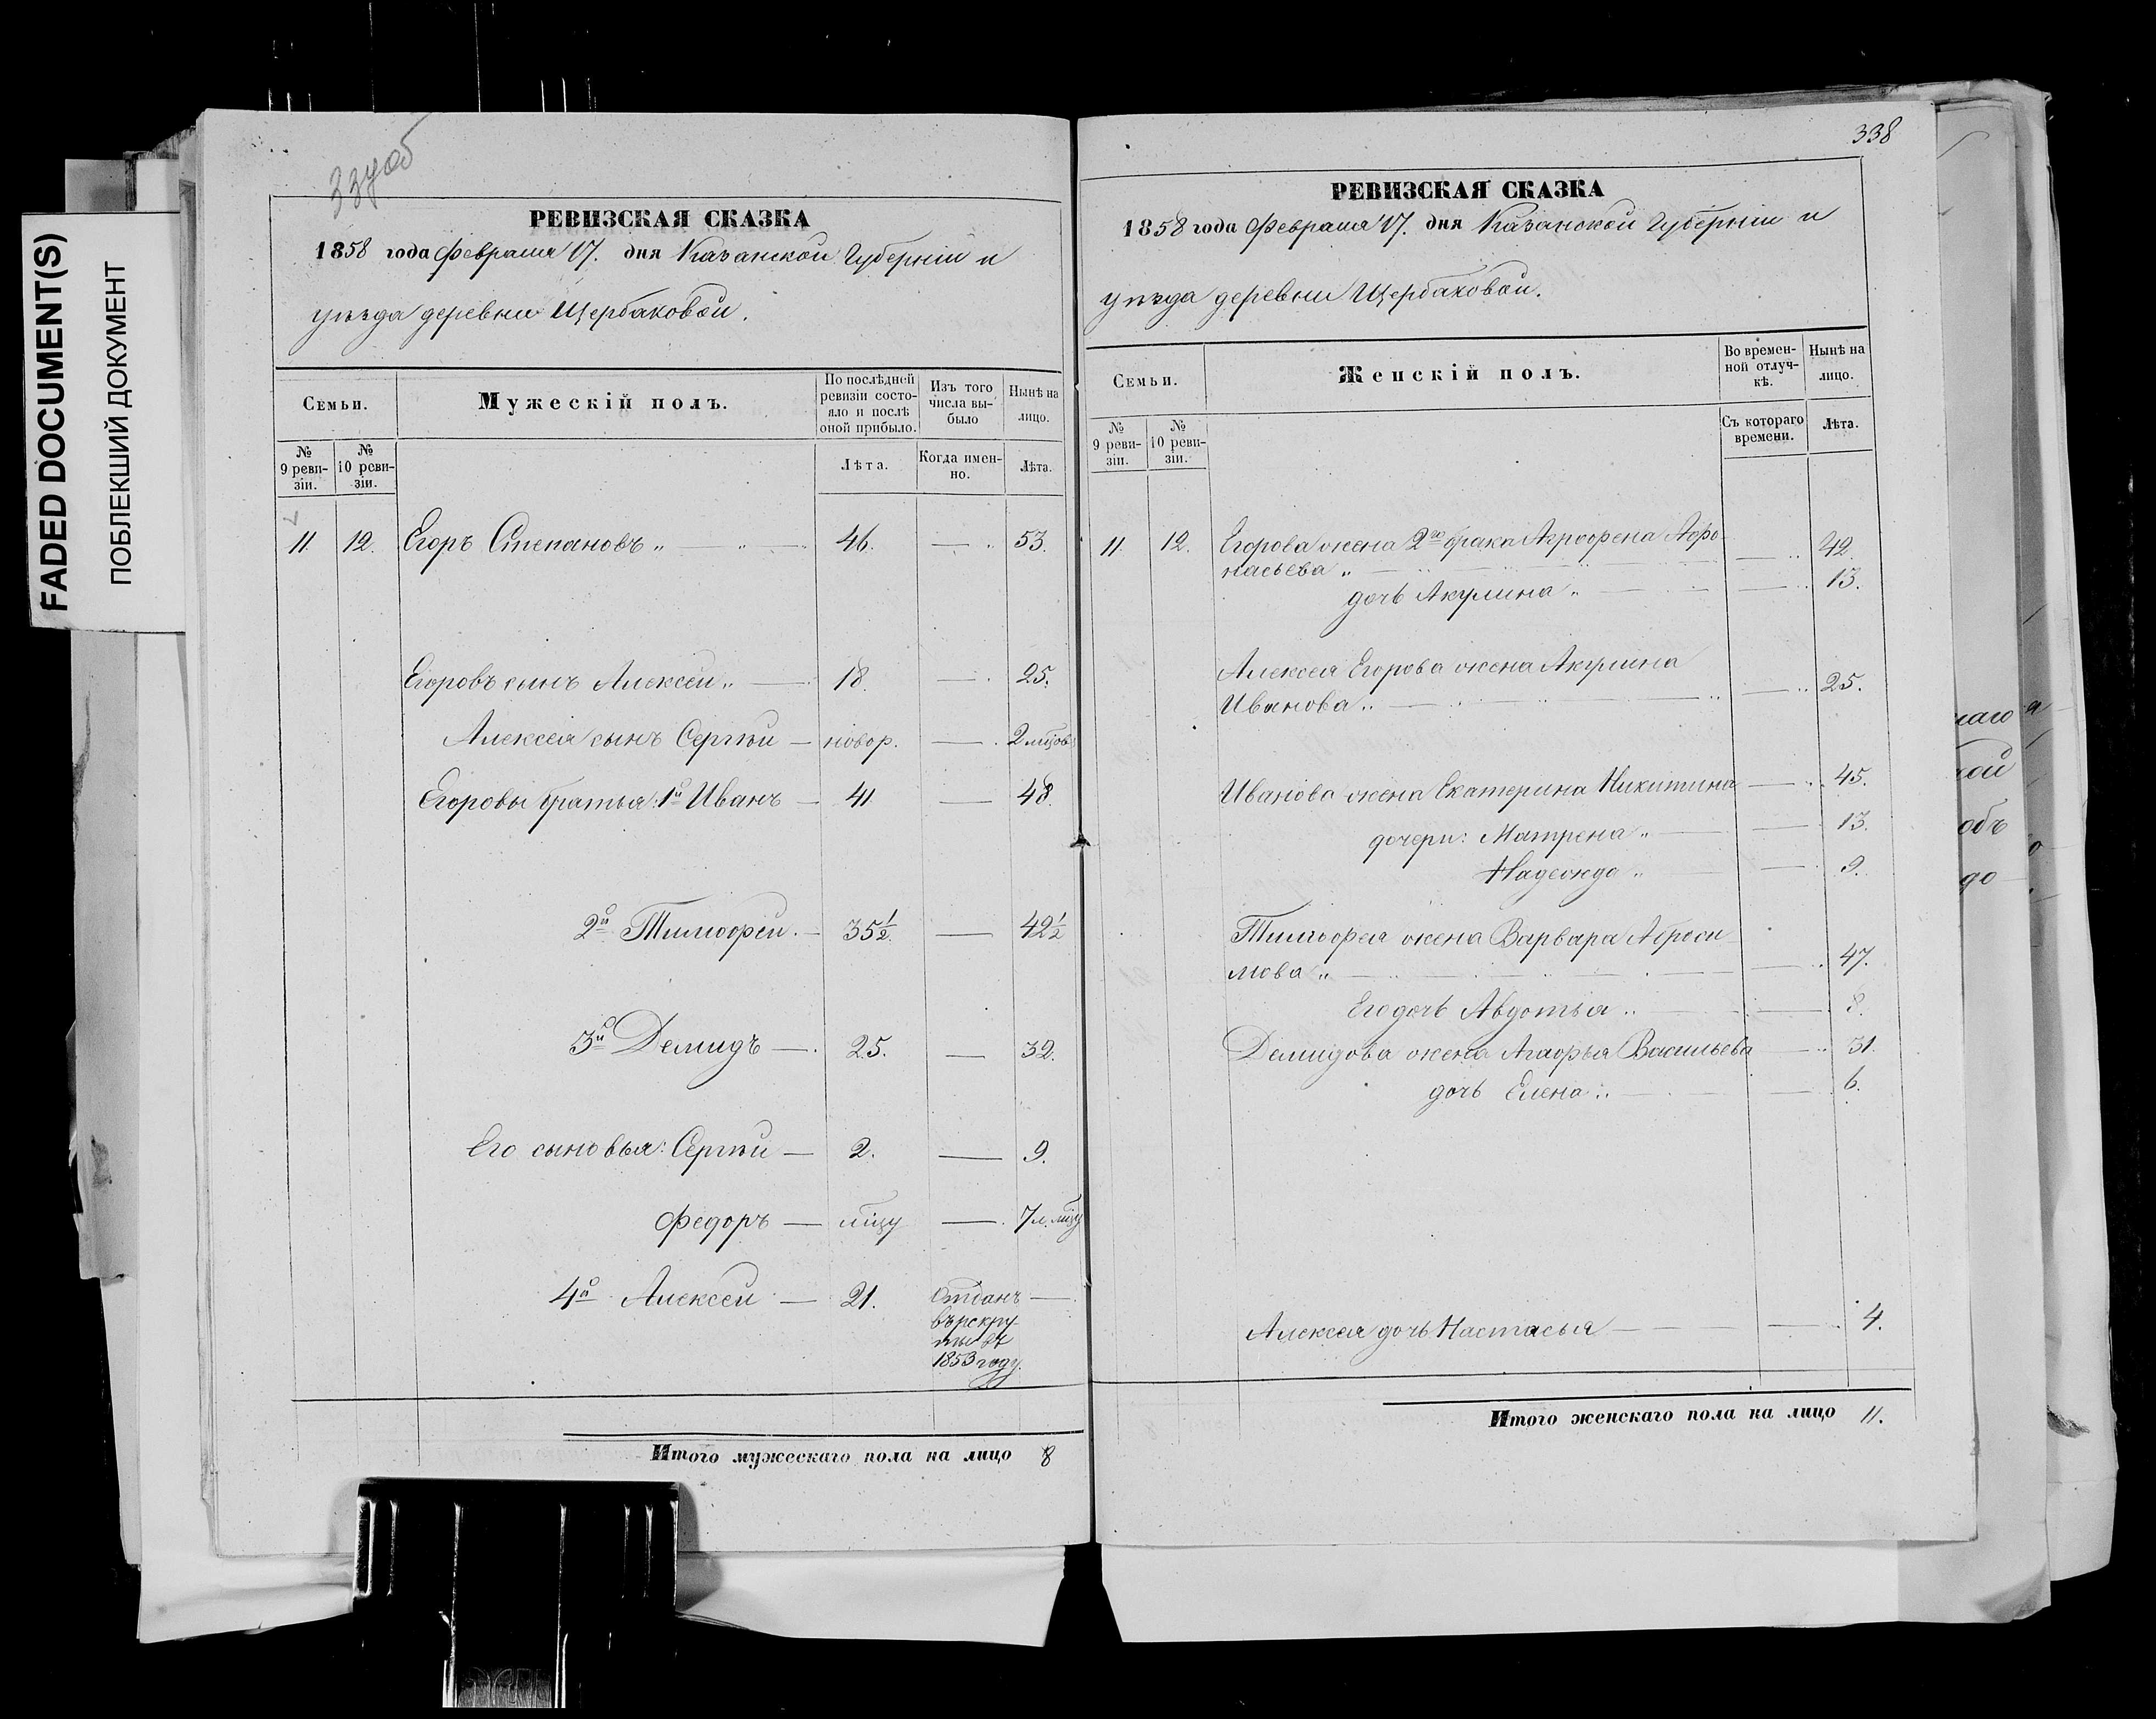 FADED DOCUMENT(S)
ПОБЛЕКШИЙ ДОКУМЕНТ
РЕВИЗСКАЯ СКАЗКА
1858 года Февраля 17. дня Казанской Губерніи и
уѣзда деревни Щербаковой.
Семьи.
Мужескій полъ.
По послѣдней ревизіи состояло и послѣ оной прибыло.
Изъ того числа выбыло
Нынѣ на лицо.
№ 9 ревизіи.
№ 10 ревизіи.
Лѣта.
Когда именно.
Лѣта.
11. 12. Егоръ Степановъ „ — 46. — 53.
Егоровъ сынъ Алексей „ — 18. — 25.
Алексея сынъ Сергѣй — новор. — 2 мцов
Егоровы братья: 1й Иванъ — 41 — 48.
2й Тимофей. — 35½. — 42½
3й Демидъ — 25. — 32.
Его сыновья: Сергѣй — 2. — 9.
Федоръ — мцу — 7 л. мцу
4й Алексей — 21. Отданъ —
въ рекру
ты въ
1853 году.
Итого мужескаго пола на лицо 8
338
РЕВИЗСКАЯ СКАЗКА
1858 года Февраля 17. дня Казанской Губерніи и
уѣзда деревни Щербаковой.
Семьи.
Женскій полъ.
Во временной отлучкѣ.
Нынѣ на лицо.
№ 9 ревизіи.
№ 10 ревизіи.
Съ котораго времени.
Лѣта.
11. 12. Егорова жена 2го брака Агрофена Афо
насьева „ — 42.
дочь Акулина „ — 13.
Алексея Егорова жена Акулина
Иванова „ — 25.
Иванова жена Екатерина Никитина — 45.
дочери: Матрена „ — 13.
Надежда „ — 9.
Тимофея жена Варвара Аброси
мова „ — 47.
Его дочь Авдотья „ — 8.
Демидова жена Агафья Васильева — 31.
дочь Елена „ — 6.
Алексея дочь Настасья — 4.
Итого женскаго пола на лицо 11.